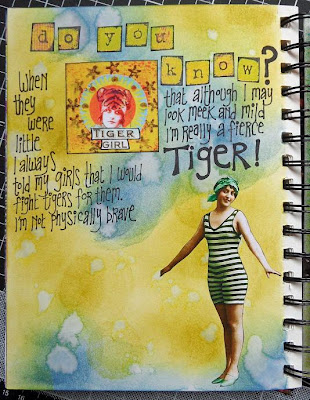 do you
know?
TIGER
GIRL
When
they
were
little
I always
told my girls that I would
fight tigers for them.
I'm not physically brave
that although I may
look meek and mild
I'm really a fierce
Tiger!